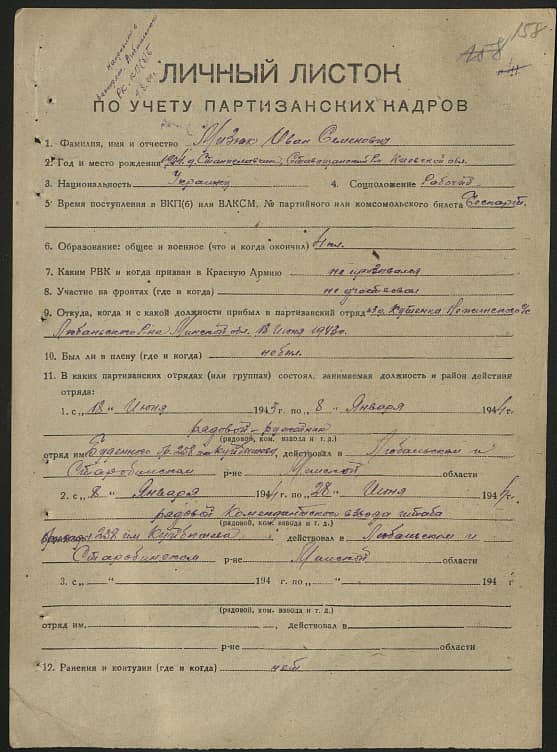 158 158
ЛИЧНЫЙ ЛИСТОК
ПО УЧЕТУ ПАРТИЗАНСКИХ КАДРОВ
1. Фамилия, имя и отчество Мизюк Иван Семенович
2. Год и место рождения Ставищанский Киевской обл.
3. Национальность Украинец 4. Соцположение Рабочий
5. Время поступления в ВКП(б) или ВЛКСМ, № партийного или комсомольского билета Беспарт.
6. Образование: общее и военное (что и когда окончил) 4 кл.
7. Каким РВК и когда призван в Красную Армию не призывался
8. Участие на фронтах (где и когда) не участвовал
9. Откуда, когда и с какой должности прибыл в партизанский отряд
Любаньского р-на Минской обл. 18 Июня 1943 г.
10. Был ли в плену (где и когда) не был
11. В каких партизанских отрядах (или группах) состоял, занимаемая должность и район действия
отряда:
1. с „18" Июня 1943 г. по „8" Января 1944 г.
рядовой-
(рядовой, ком. взвода и т. д.)
отряд им. Буденного бр. 258 им Куйбышева, действовал в Любаньском и
Старобинском р-не Минской области
2. с „8" Января 1944 г. по „28" Июня 1944 г.
рядовой Комендантского взвода штаба
(рядовой, ком. взвода и т. д.)
258 им Куйбышева действовал в Любаньском и
Старобинском р-не Минской области
3. с „ " 194 г. по „ " 194 г
(рядовой, ком. взвода и т. д.)
отряд им. , действовал в
р-не области
12. Ранения и контузии (где и когда) нет